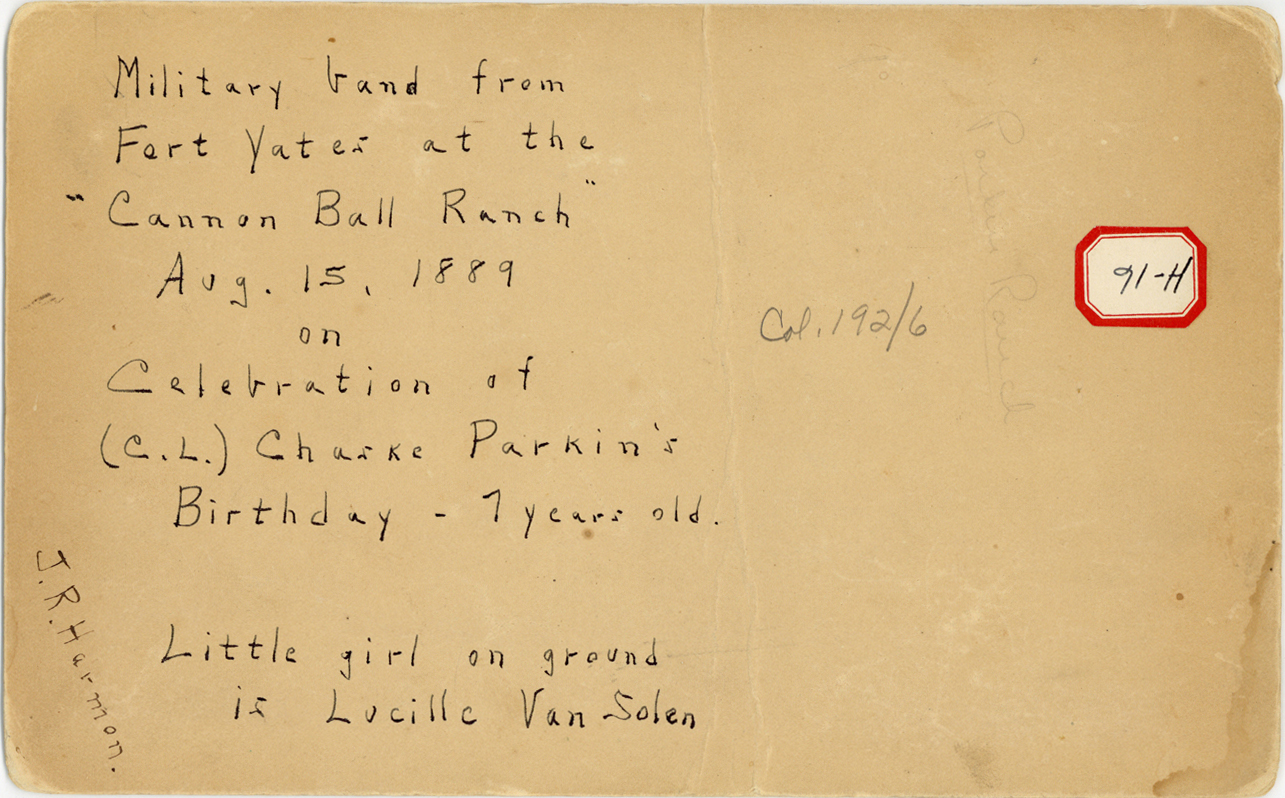 Military band from
Fort Yates at the
"Cannon Ball Ranch"
Aug. 15, 1889
on
Celebration of
(C.L.) Chaske Parkin's
Birthday - 7 years old.
Little girl on ground
is Lucille Van Solen
J.R. Harmon.
Col. 192/6
Ranch
91-H